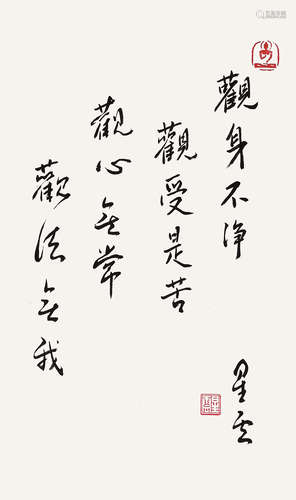 觀身不淨
觀受是苦
觀心無常
觀法無我
星雲